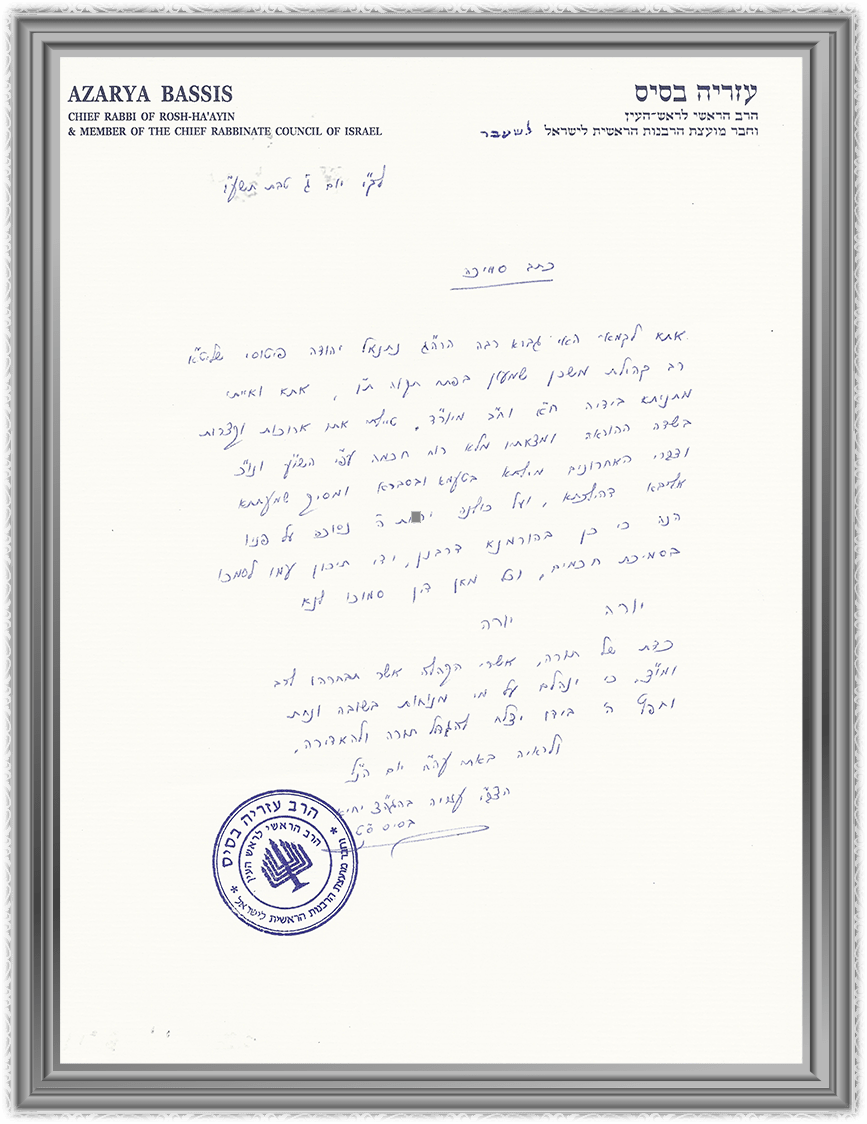 AZARYA BASSIS
CHIEF RABBI OF ROSH-HA'AYIN
& MEMBER OF THE CHIEF RABBINATE COUNCIL OF ISRAEL
עזריה בסיס
הרב הראשי לראש־העין
וחבר מועצת הרבנות הראשית לישראל לשעבר
יום ג' טבת תשע"ו
כתב סמיכה
אתא לקמאי האי גברא רבה הרה"ג נתנאל יהודה פיטוסי שליט"א
רב קהילת משכן שמעון בפתח תקוה ת"ו, אתא ואייתי
מתניתא בידיה ח"א וח"ב מיו"ד. טיילתי אתו ארוכות וקצרות
בשדה ההוראה ומצאתיו מלא רוח חכמה עפ"י השו"ע ונו"כ
ודברי האחרונים מילתא בטעמא ובסברא ומסיק שמעתתא
אליבא דהילכתא, ועל כולנה ה' נסוכה על פניו
הנה כי כן בהורמנא דרבנן, ידי תיכון עמו לסמכו
בסמיכת חכמים, וכל מאן דין סמוכו לנא
יורה יורה
כדת של תורה, אשרי הקהלה אשר תבחרהו לרב
ומו"צ, כי ינהלם על מי מנוחות בשובה ונחת
וחפץ ה' בידו יצלח להגדיל תורה ולהאדירה.
ולראיה באתי עה"ח יום הנ"ל
הצב"י עזריה בהגה"צ יחיא
בסיס
הרב עזריה בסיס
הרב הראשי לראש העין
וחבר מועצת הרבנות הראשית לישראל